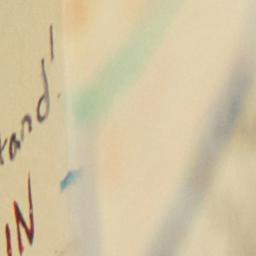 tand!
IN